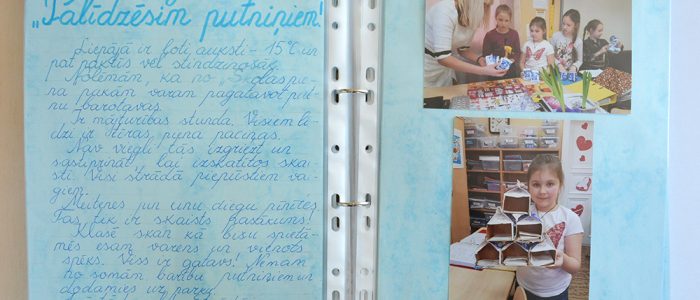 „Palīdzēsim putniņiem!
Liepājā ir ļoti auksti -15°C un
pat naktīs vēl stindzinošāk.
Nolēmām, ka no „Skolas pie-
na" pakām varam pagatavot put-
nu barotavas.
Ir mājturības stunda. Visiem lī-
dzi ir tīras, piena paciņas.
Nav viegli tās izgriezt un
sastiprināt, lai izskatītos skai-
sti. Visi strādā piepūstiem vai-
giem.
Meitenes pin virvju diegu pīnītes.
Tas tik ir skaists rasākums!
Klasē skan kā bišu spieta-
mēs esam varens un vienots
spēks. Viss ir gatavs! Ņemam
no somām barību putniņiem un
dodamies uz parku.